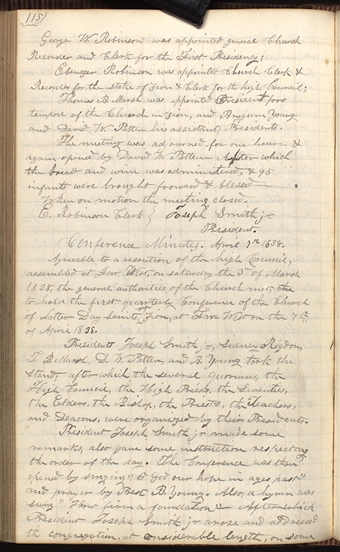 115
George W. Robinson was appointed general Church
Recorder and Clerk for the First Presidency;
Ebenezer Robinson was appointed Church Clerk &
Recorder for the stake of Zion & Clerk for the high Council;
Thomas B. Marsh was appointed President pro
tempore of the Church in Zion, and Brigham Young
and David W. Patten his assistant Presidents.
The meeting was adjourned for one hour &
again opened by David W. Patten. After which
the bread and wine was administered, & 95
infants were brought forward & blessed
When on motion the meeting closed.
E. Robinson Clerk } Joseph Smith jr
President.
Conference Minutes. April 7th 1838.
Agreeable to a resolution of the high Council,
assembled at Far West, on saturday the 3rd of March
1838, the general authorities of the Church met, the
to hold the first quarterly Conference of the Church
of Latter Day Saints, Zion, at Far West on the 7th
of April 1838.
President Joseph Smith jr, Sidney Rigdon,
T. B. Marsh, D. W. Patten, and B. Young took the
stand, after which the several quorums, the
High Council, the High Priests, the Seventies,
the Elders, the Bishop, the Priests, the Teachers,
and Deacons, were organized by their Presidents.
President Joseph Smith jr made some
remarks, also gave some instruction respecting
the order of the day. The Conference was then
opened by singing "O God our help in ages past"
and prayer by Prest B. Young. Also a hymn was
sung "How firm a foundation" & After which
President Joseph Smith jr arose and addressed
the congregation, at considerable length, on some